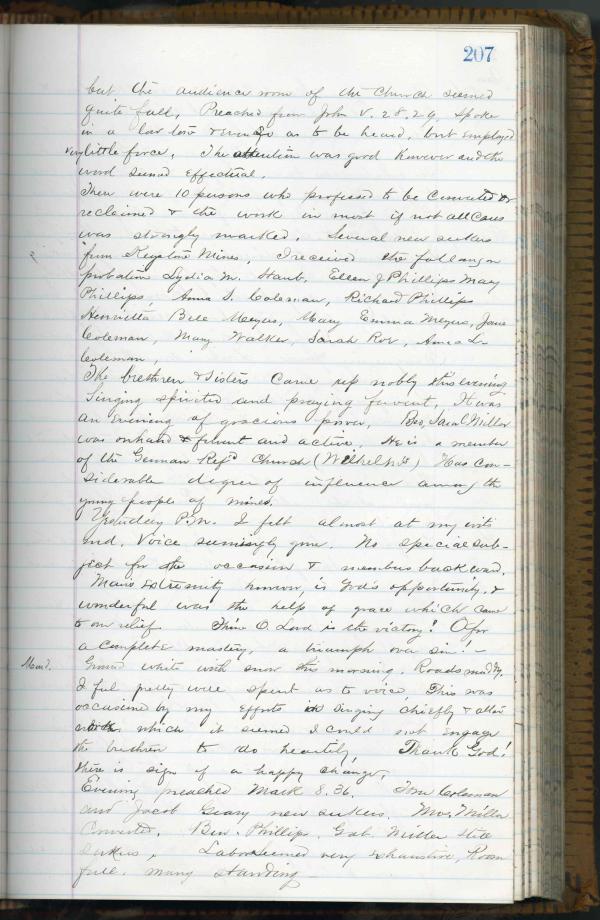 207
but the audience room of the Church seemed
quite full, Preached from John V. 28.29, Spoke
in a low tone as to be heard, but employed
very little force, The attention was good however and the
word seemed effectual.
There were 10 persons who professed to be Converted or
reclaimed & the work in most if not all Cases
was strongly marked. Several new seekers
from Keystone Mines, I received the following on
probation Lydia M. Staub, Ellen J Phillips Mary
Phillips, Anna S. Coleman, Richard Phillips
Henrietta Bell Meyers, Mary Emma Meyers, Jane
Coleman, Mary Walker, Sarah Rox, Annie L.
Coleman,
The brethren & Sisters Came up nobly this evening
Singing spirited and praying fervent, It was
an Evening of gracious power, Bro, Miller
was on hand & fervent and active, He is a member
of the German Refd Church () Has Con-
siderable degree of influence among the
young people of mines.
Yesterday P.M. I felt almost at my wits
end, Voice seemingly gone. No special sub-
ject for the occasion & members backward.
Mans Extremity however, is God's opportunity, &
wonderful was the help of grace which came
to our relief Thine O Lord is the victory! O for
a Complete mastery, a triumph over sin! -
Mond. Ground white with snow this morning, Roads muddy.
I feel pretty well spent as to voice, This was
occasioned by my efforts in Singing chiefly & altar
which it seemed I could not engage
the brethren to do heartily, Thank God!
there is sign of a happy change,
Evening preached Mark 8.36, Tom Coleman
and Jacob Geary new seekers. Miller
Converted. Ben. Phillips, Gab. Miller still
seekers, Labor seemed very exhaustive, Room
full. many standing -